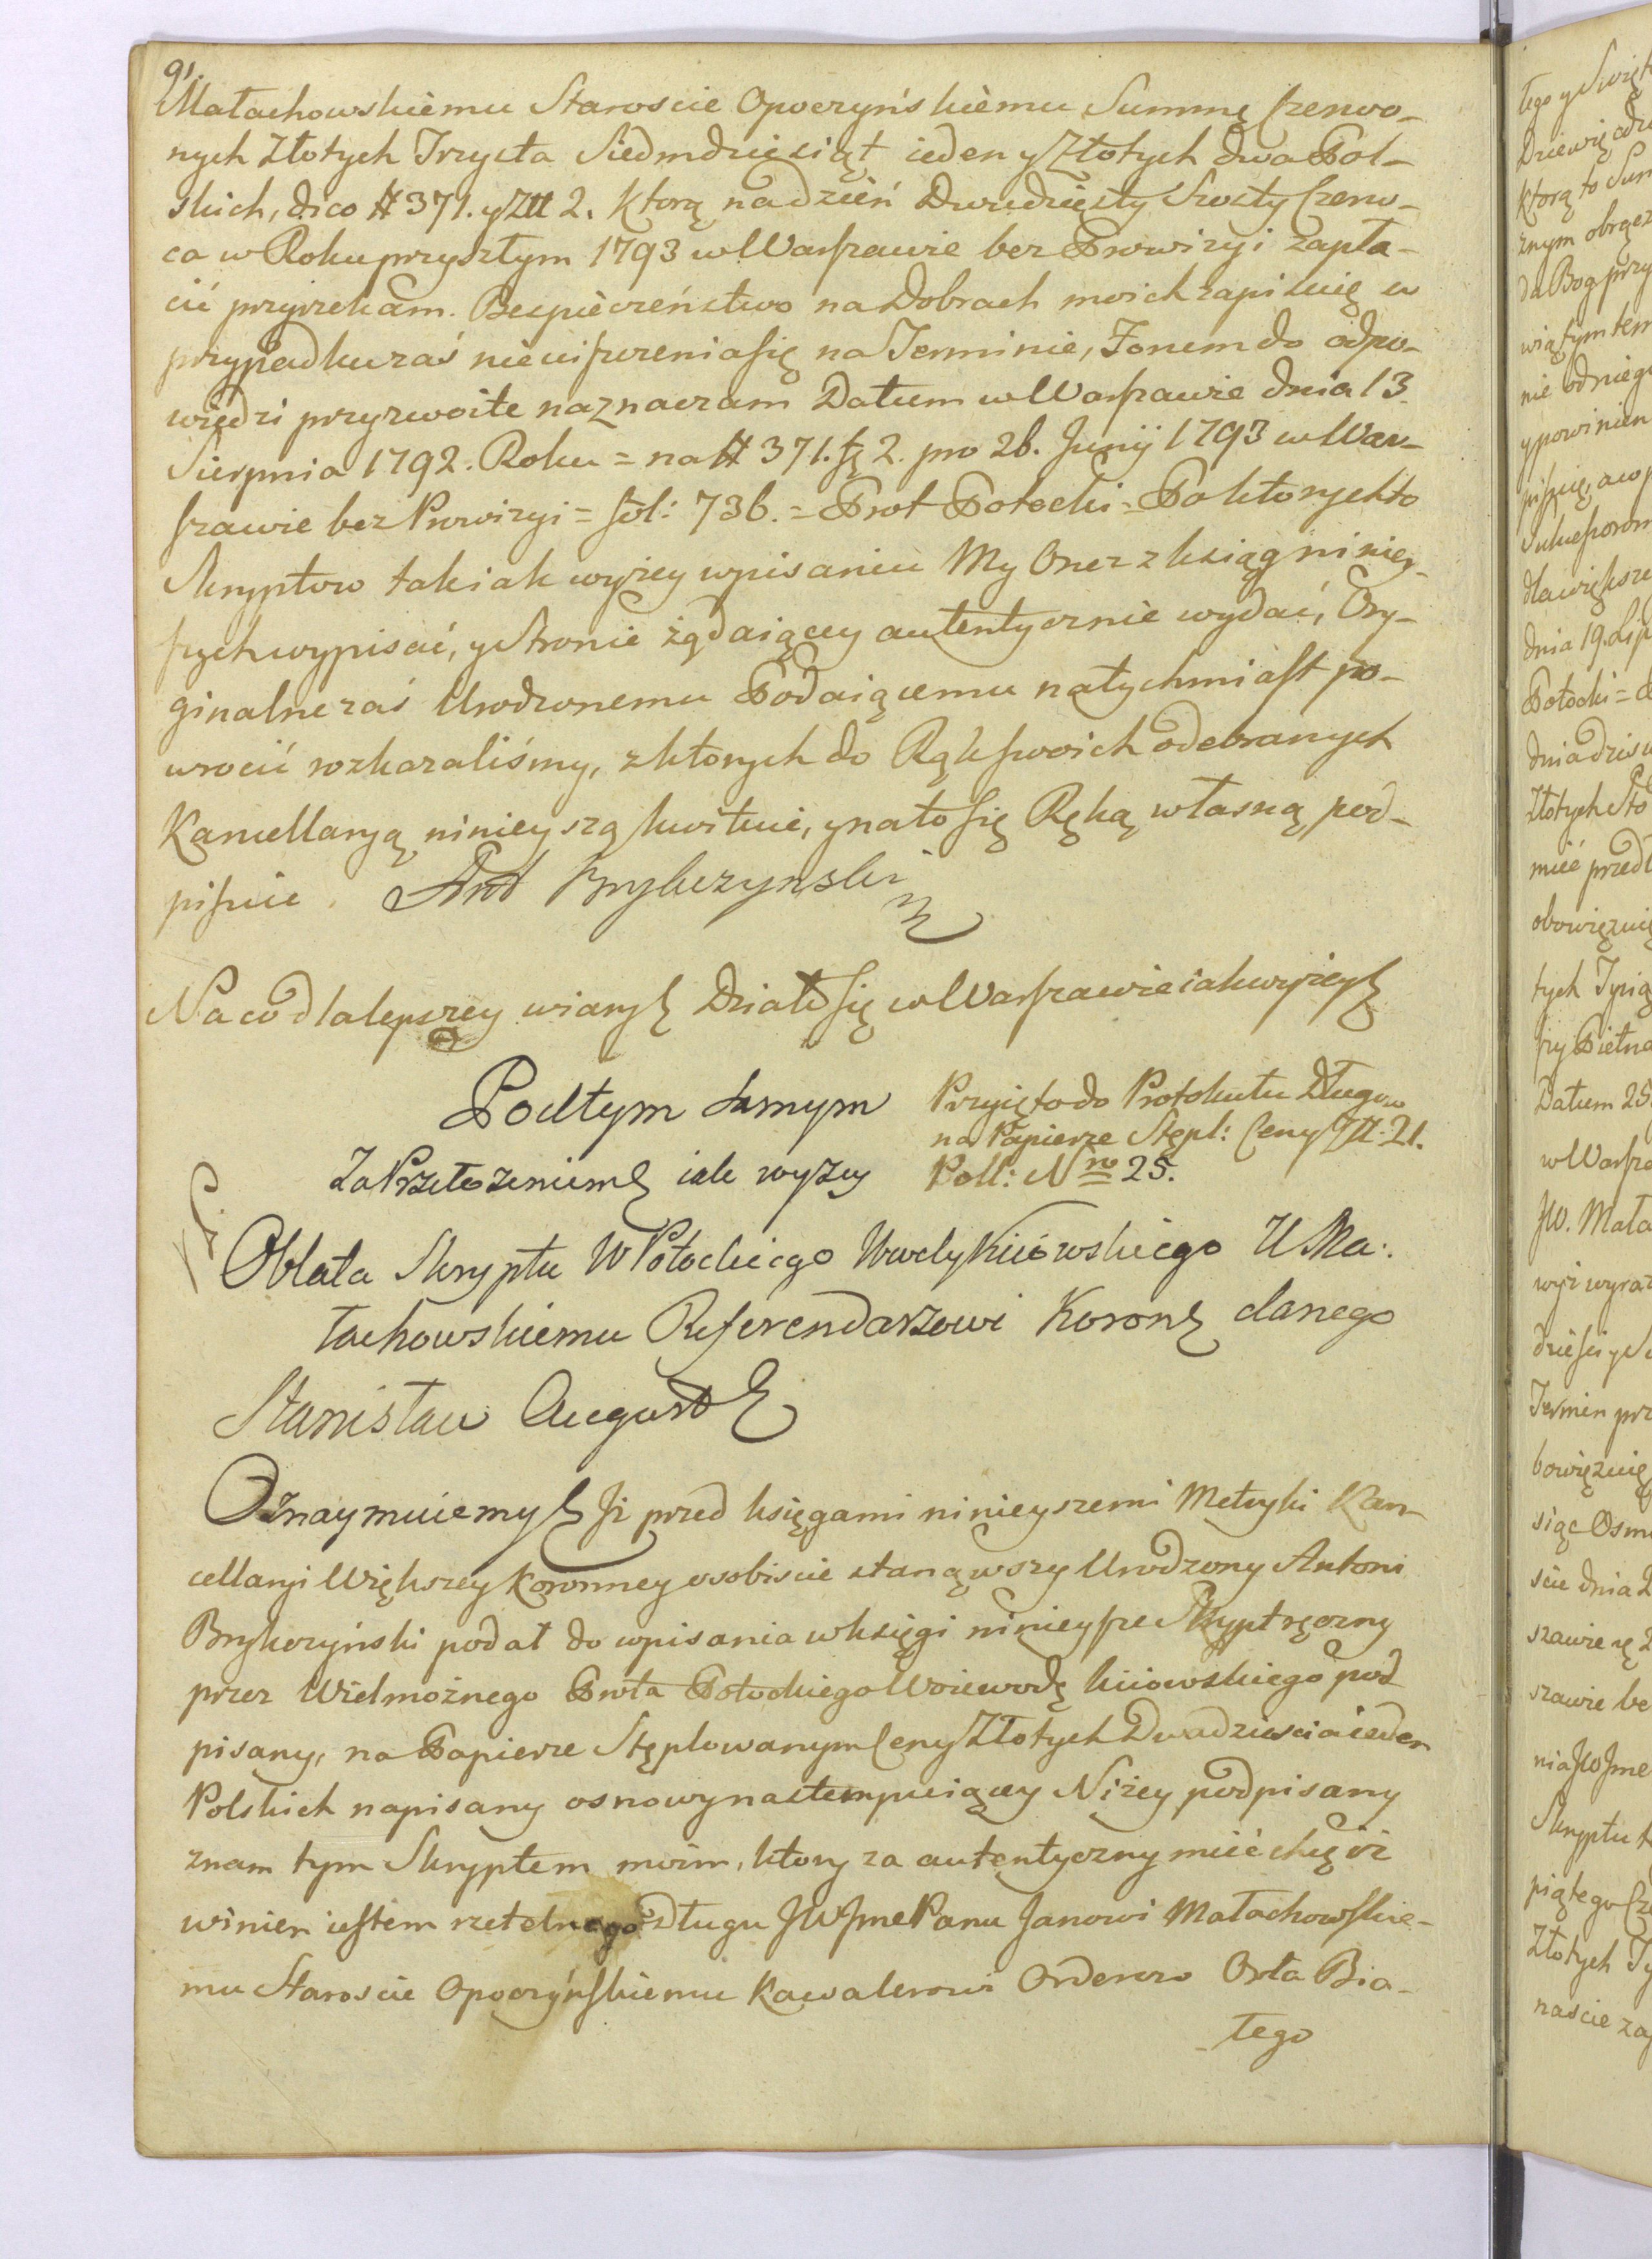 91.
Małachowskiemu Staroscie Opoczyńskiemu Summę Czerwo-
nych Złotych Trzysta Siedmdziesiąt ieden y Złotych dwa Pol-
skich, dico # 371. y Złł 2. ktorą na dzień Dwudziesty Szosty Czerw-
ca w Roku przyszłym 1793 w Warszawie bez Prowizyi zapła-
cić przyrzekam. Bespieczeństwo na Dobrach moich zapisuię w
przypadku zaś nieuiszczenia się na Terminie, Forum do odpo-
wiedzi przyzwoite naznaczam Datum w Warszawie dnia 13
Sierpnia 1792. Roku = na # 371. fł 2. pro 26. Junij 1793 w War-
szawie bez Prowizyi = fol: 736. = Prot Potocki = Po ktorych to
Skryptow tak iak wyżey wpisaniu My One z ksiąg niniey-
szych wypisać, y Stronie żądaiącey autentycznie wydać, Ory-
ginalne zaś Urodzonemu Podaiącemu natychmiast po-
wrocić rozkazaliśmy, z ktorych do Rąk swoich odebranych
Kancellaryą ninieyszą kwituie, y na to się Ręką własną pod-
pisuie. Ant Brykczynski
Na co dla lepszey wiary Działo się w Warszawie iak wyżey
Pod tym samym
Za Przełożeniem iak wyzey
Przyięto do Protokułu Długow
na Papierze Stępl: Ceny Złł: 21.
Poll: Nro 25.
Oblata Skryptu W Potockiego Wwdy Kiiowskiego U Ma:
łachowskiemu Referendarzowi Koron danego
Stanisław August
Oznaymuiemy Iż przed księgami ninieyszemi Metryki Kan-
cellaryi Większey Koronney osobiscie stanąwszy Urodzony Antoni
Brykczyński podał do wpisania w księgi ninieysze Skrypt ręczny
przez Wielmożnego Prota Potockiego Woiewodę kiiowskiego pod
pisany, na Papierze Stęplowanym Ceny Złotych Dwadziescia ieden
Polskich napisany osnowy nastempuiącey Niżey podpisany
znam tym Skryptem moim, ktory za autentyczny mieć chcę iż
winien iestem rzetelnego Długu JW Jme Panu Janowi Małachowskie-
mu Staroscie Opoczyńskiemu Kawalerowi Orderow Orła Bia-
łego